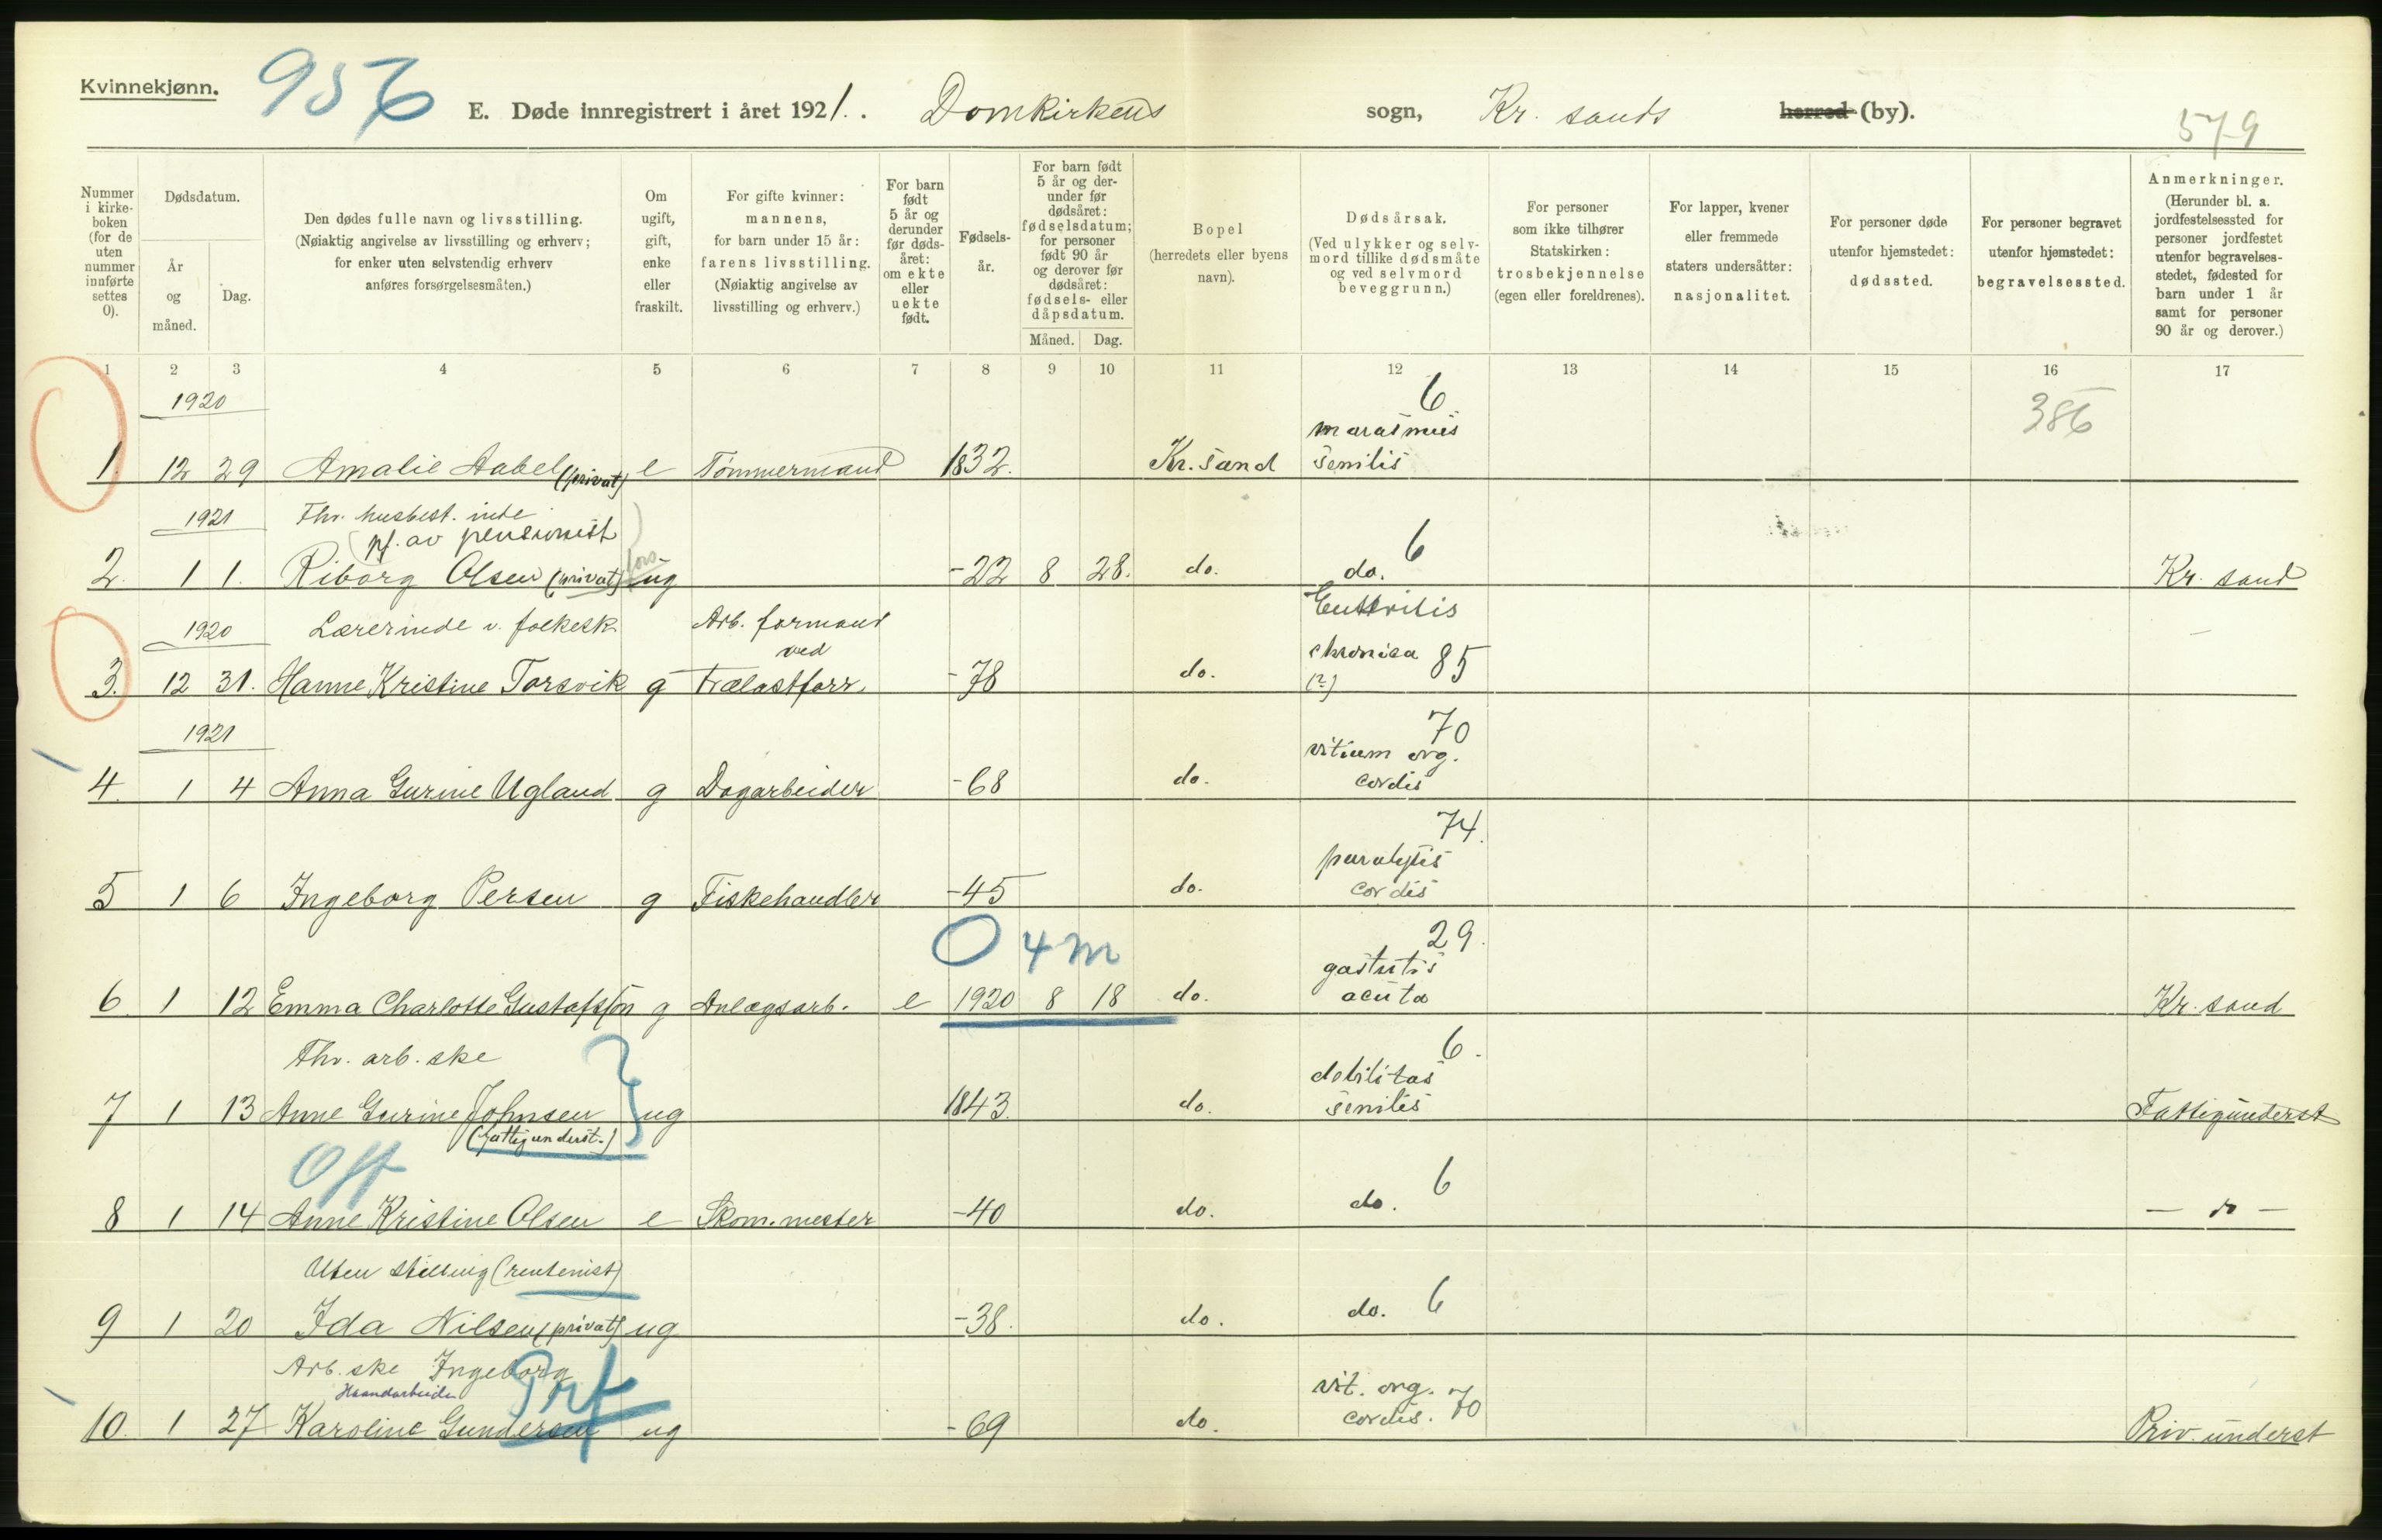 Kvinnekjønn.
956
E. Døde innregistrert i året 1921. . Domkirkens sogn, Kr. sands herred (by).
579
Nummer i kirkeboken (for de uten nummer innførte settes 0).
Dødsdatum.
År og måned.
Dag.
Den dødes fulle navn og livsstilling.
(Nøiaktig angivelse av livsstilling og erhverv; for enker uten selvstendig erhverv anføres forsørgelsesmåten.)
Om ugift, gift, enke eller fraskilt.
For gifte kvinner: mannens, for barn under 15 år: farens livsstilling. (Nøiaktig angivelse av livsstilling og erhverv.)
For barn født 5 år og derunder før dødsåret: om ekte eller uekte født.
Fødselsår.
For barn født 5 år og derunder før dødsåret: fødselsdatum; for personer født 90 år og derover før dødsåret: fødsels- eller dåpsdatum.
Måned. Dag.
Bopel (herredets eller byens navn).
Dødsårsak. (Ved ulykker og selvmord tillike dødsmåte og ved selvmord beveggrunn.)
For personer som ikke tilhører Statskirken: trosbekjennelse (egen eller foreldrenes).
For lapper, kvener eller fremmede staters undersåtter: nasjonalitet.
For personer døde utenfor hjemstedet: dødssted.
For personer begravet utenfor hjemstedet: begravelsessted.
Anmerkninger. (Herunder bl. a. jordfestelsessted for personer jordfestet utenfor begravelsesstedet, fødested for barn under 1 år samt for personer 90 år og derover.)
1 2 3 4 5 6 7 8 9 10 11 12 13 14 15 16 17
1920
6
386
marasmus
1. 12 29 Amalie Aabel (privat) e Tømmermand 1832. Kr. sand senilis
1921 Fhv. husbest. inde
pf. av pensionist
6
2. 1 1. Riborg Olsen (privat) ug -22 8 28. do. do. Kr. sand
1920 Lærerinde v. folkesk. Arb. formand Enteritis
ved
chronica 85
3. 12 31. Hanne Kristine Torsvik g Trælastforr. -78 do. (?)
1921
70
vitium org.
4. 1 4 Anna Gurine Ugland g Dagarbeider -68 do. cordis
74.
paralysis
5 1 6 Ingeborg Persen g Fiskehandler -45 do. cordis
0 4 m
29.
gastritis
6. 1 12 Emma Charlotte Gustafsson g Anlægsarb. e 1920 8 18 do. acuta Kr. sand
Fhv. arb. ske
6.
debilitas
7 1 13 Anne Gurine Johnsen ug 1843. do. senilis Fattigunderst
(fattigunderst.)
Off
6
8 1 14 Anne Kristine Olsen e Skom. mester -40 do. do. - do -
Uten stilling (rentenist)
9 1 20 Ida Nilsen (privat) ug -38. do. do. 6
Arb. ske Ingeborg
Haandarbeide
Prf
vit. org. 70
10. 1 27 Karoline Gundersen ug -69 do. cordis. Priv. underst